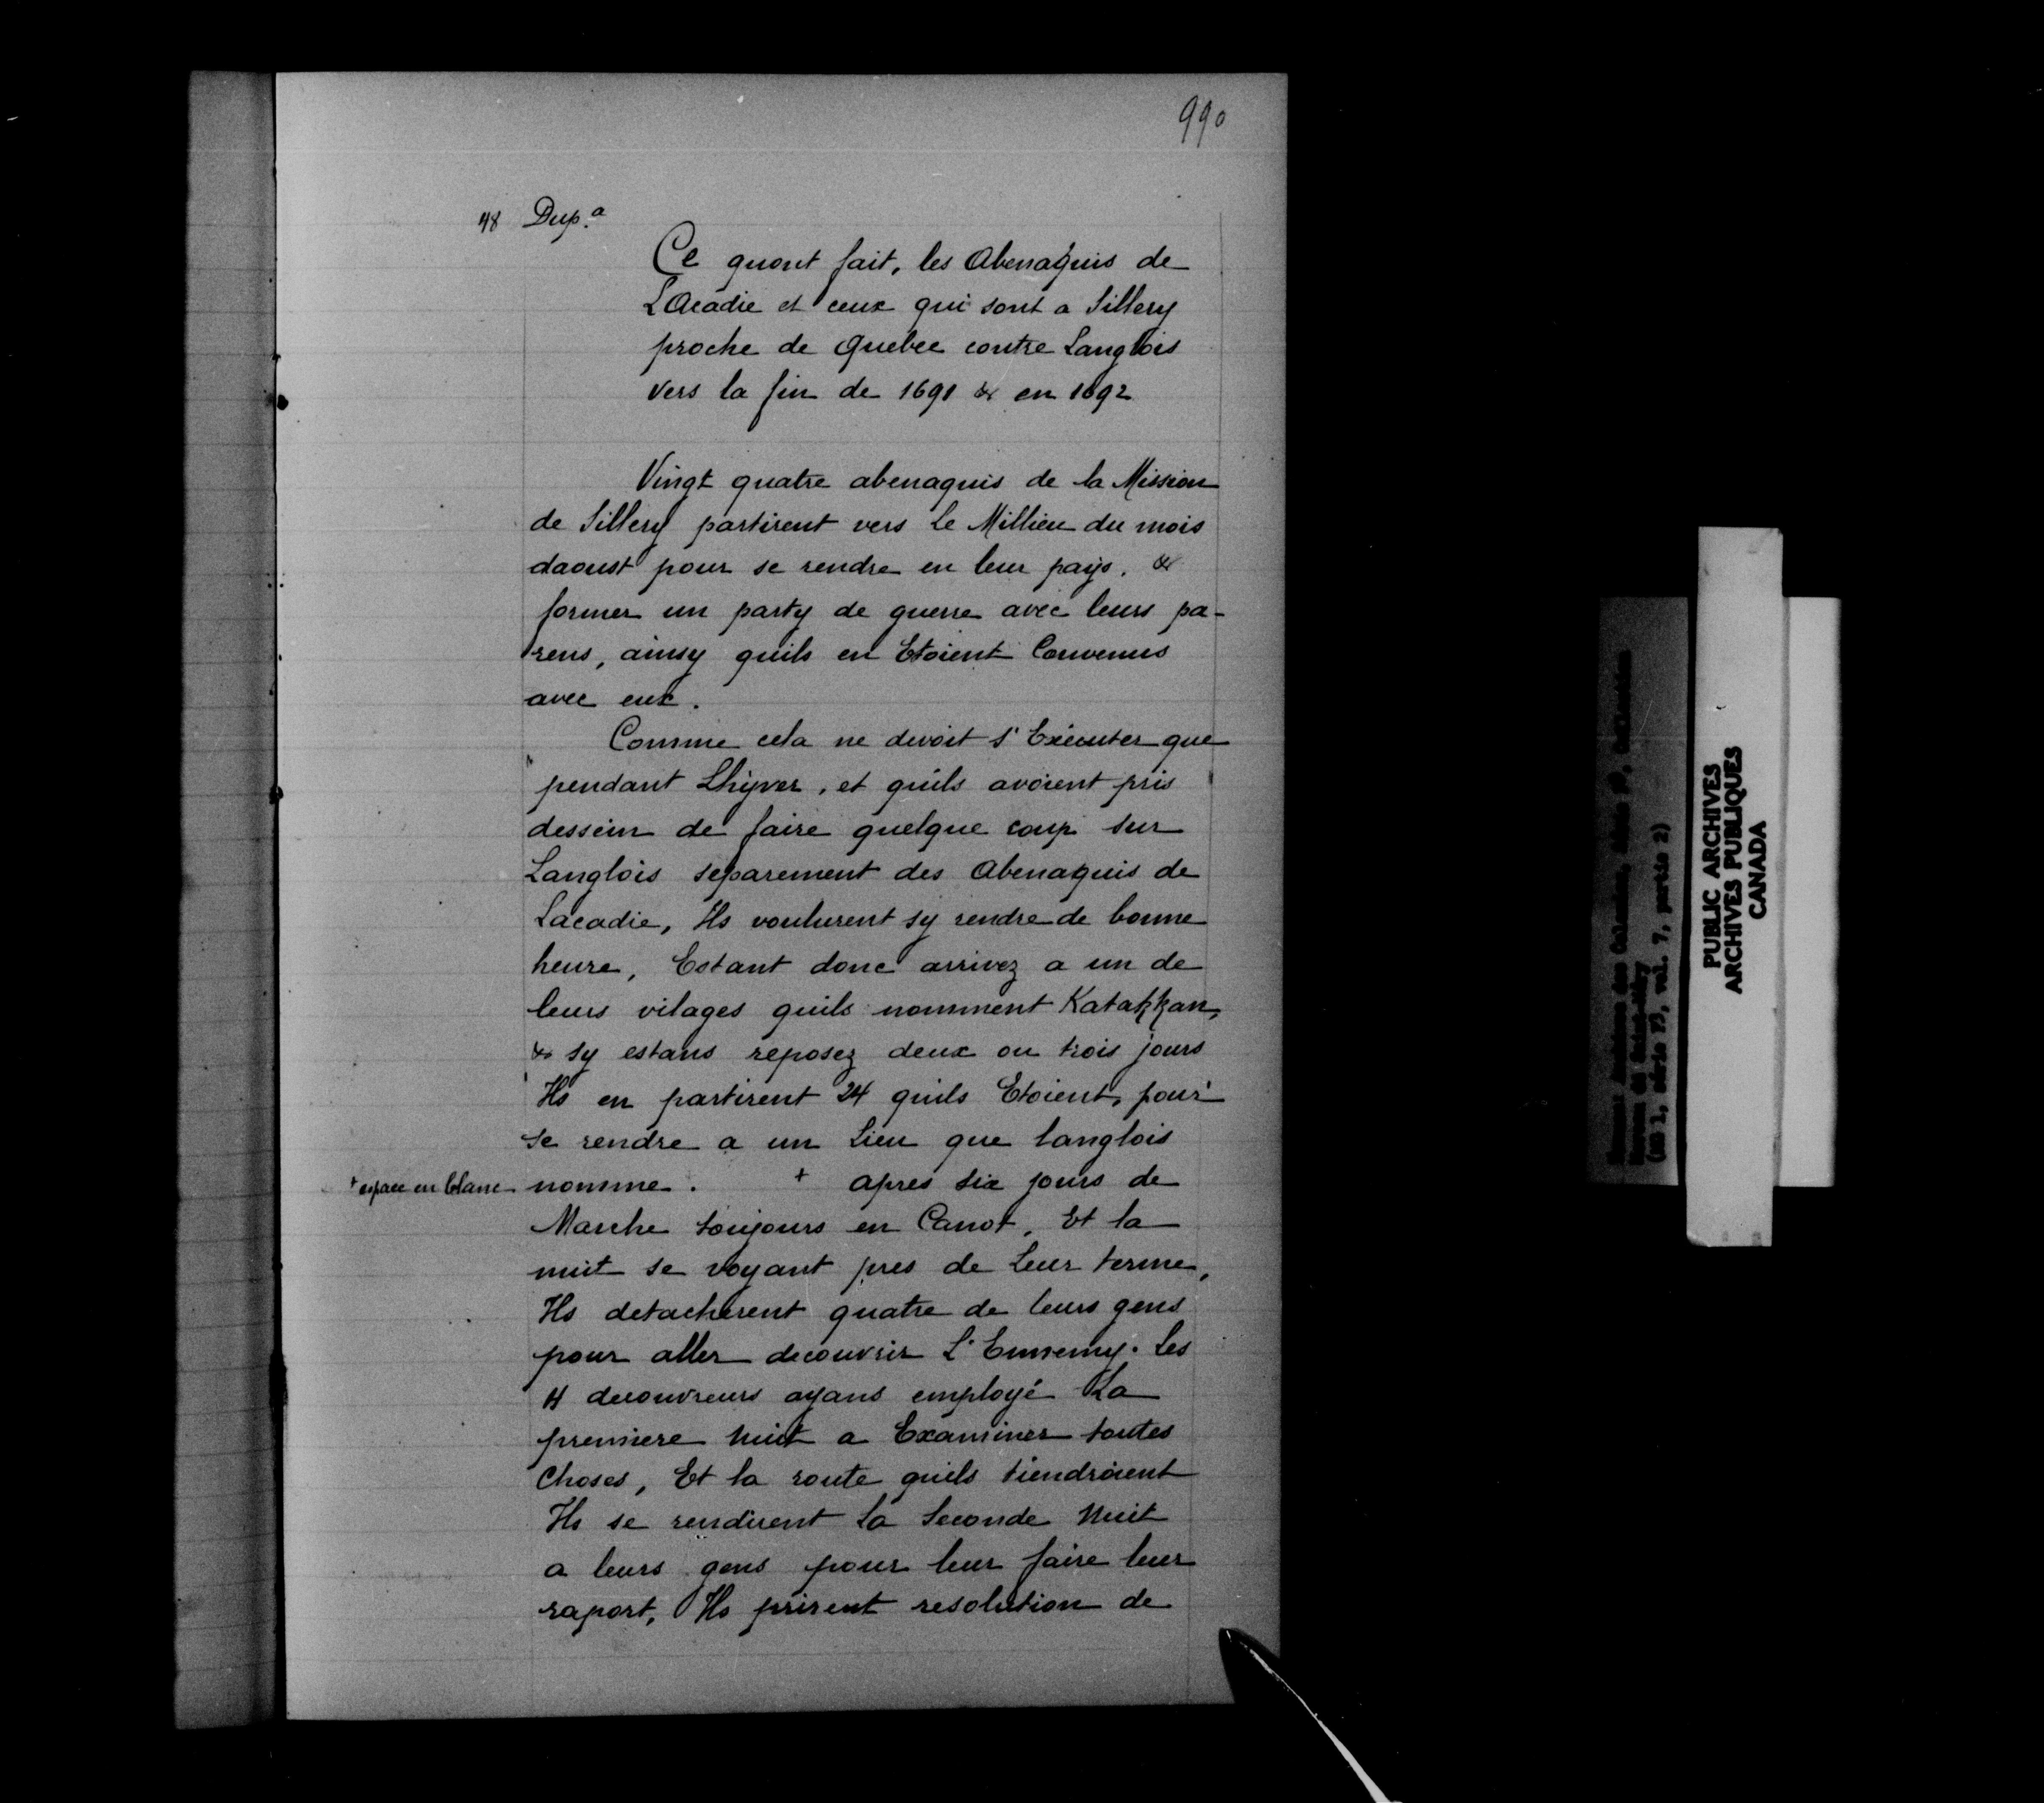 990
48 Dup.a
Ce quont fait, les Abenaquis de
L'Acadie et ceux qui sont a Sillery
proche de Quebec contre Langlois
vers la fin de 1691 & en 1692
Vingt quatre abenaquis de la Mission
de Sillery partirent vers le Millieu du mois
daoust pour se rendre en leur pays. &
former un party de guerre avec leurs pa-
rens, ainsy quils en Etoient Convenus
avec eux.
Comme cela ne devoit s'Executer que
pendant Lhyver, et quils avoient pris
dessein de faire quelque coup sur
Langlois separement des Abenaquis de
Lacadie, Ils voulurent sy rendre de bonne
heure, Estant donc arrivez a un de
leurs vilages quils nomment Katakkan,
& sy estans reposez deux ou trois jours
Ils en partirent 24 quils Etoient, pour
se rendre a un Lieu que langlois
+ espace en blanc nomme. + apres six jours de
Marche toujours en Canot, Et la
nuit se voyant pres de Leur terme,
Ils detacherent quatre de leurs gens
pour aller decouvrir L'Ennemy. Les
4 decouvreurs ayans employé La
premiere Nuit a Examiner toutes
Choses, Et la route quils tiendroient
Ils se rendirent la Seconde Nuit
a leurs gens pour leur faire leur
raport, Ils prirent resolution de
(MG 1, série F3, vol. 7, partie 2)
PUBLIC ARCHIVES
ARCHIVES PUBLIQUES
CANADA